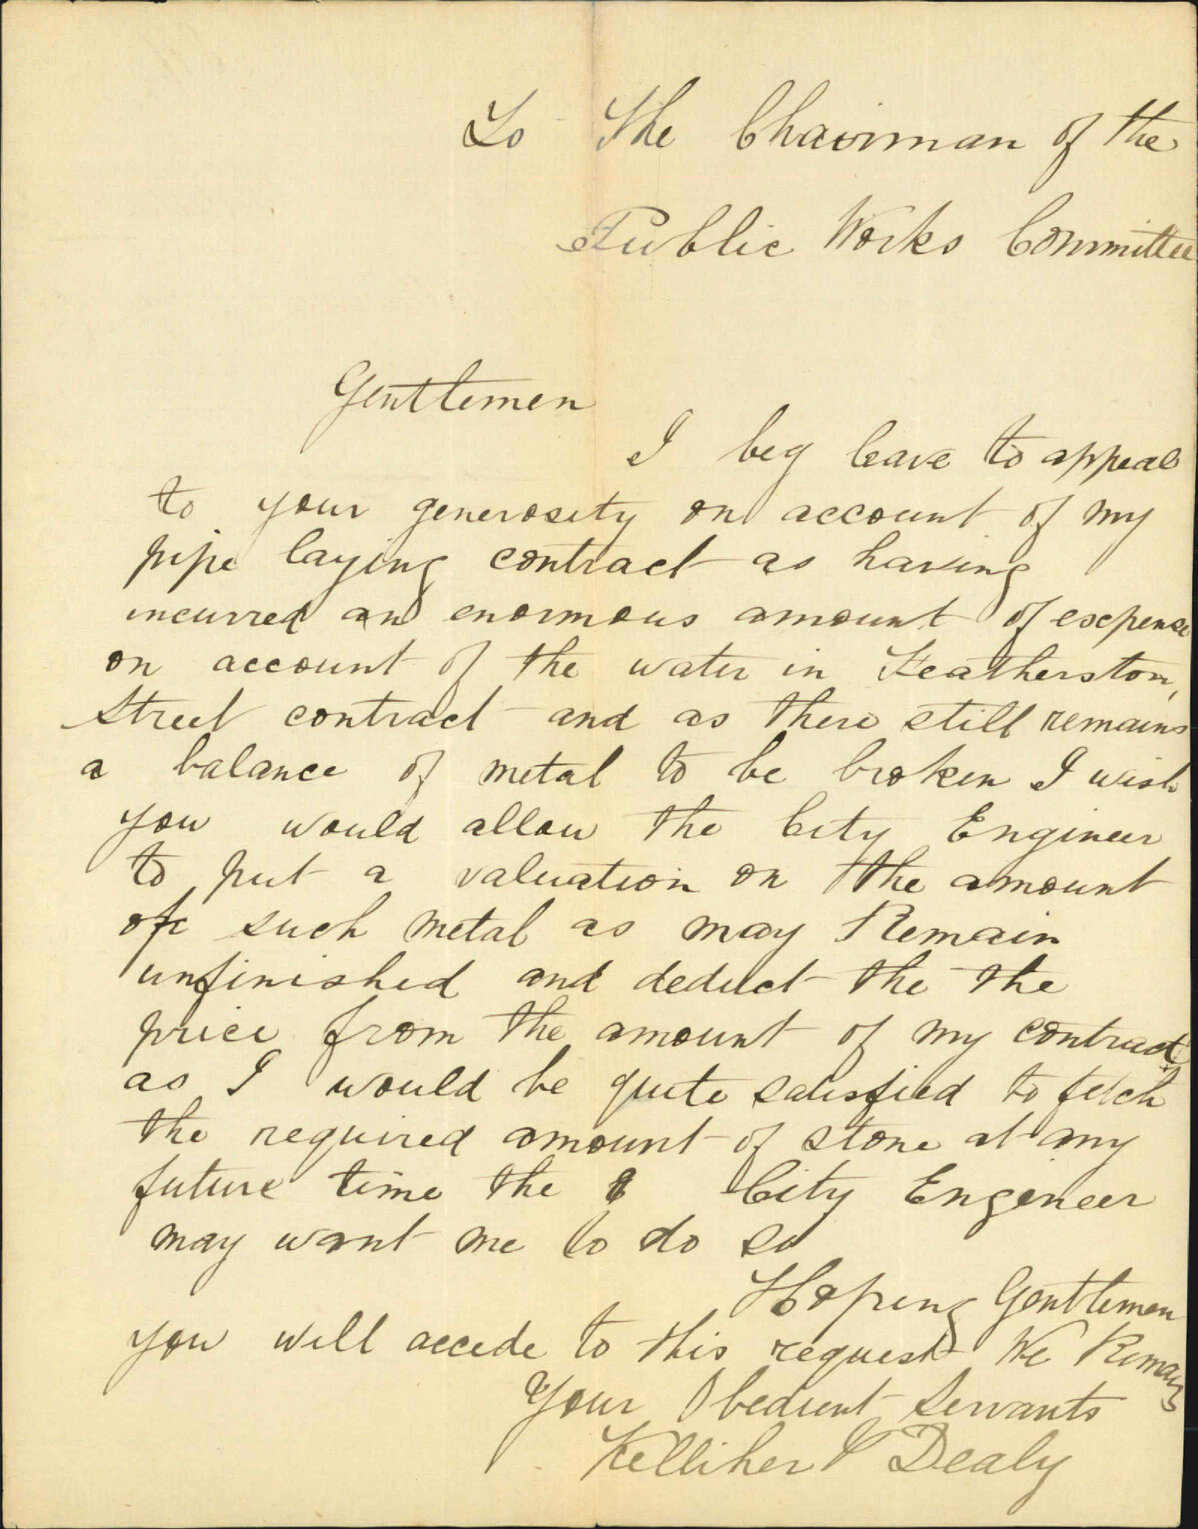 To The Chairman of the
Public Works Committee
Gentlemen
I beg leave to appeal
to your generosity on account of my
pipe laying contract as having
incurred an enormous amount of expense
on account of the water in Featherston,
Street contract and as there still remains
a balance of metal to be broken I wish
you would allow the City Engineer
to put a valuation on the amount
of such metal as may Remain
unfinished and deduct the the
price from the amount of my contract
as I would be quite satisfied to fetch
the required amount of stone at any
future time the City Engineer
may want me to do so
Hoping Gentlemen
you will accede to this request We Remain
Your Obedient Servants
Kelliher & Dealy